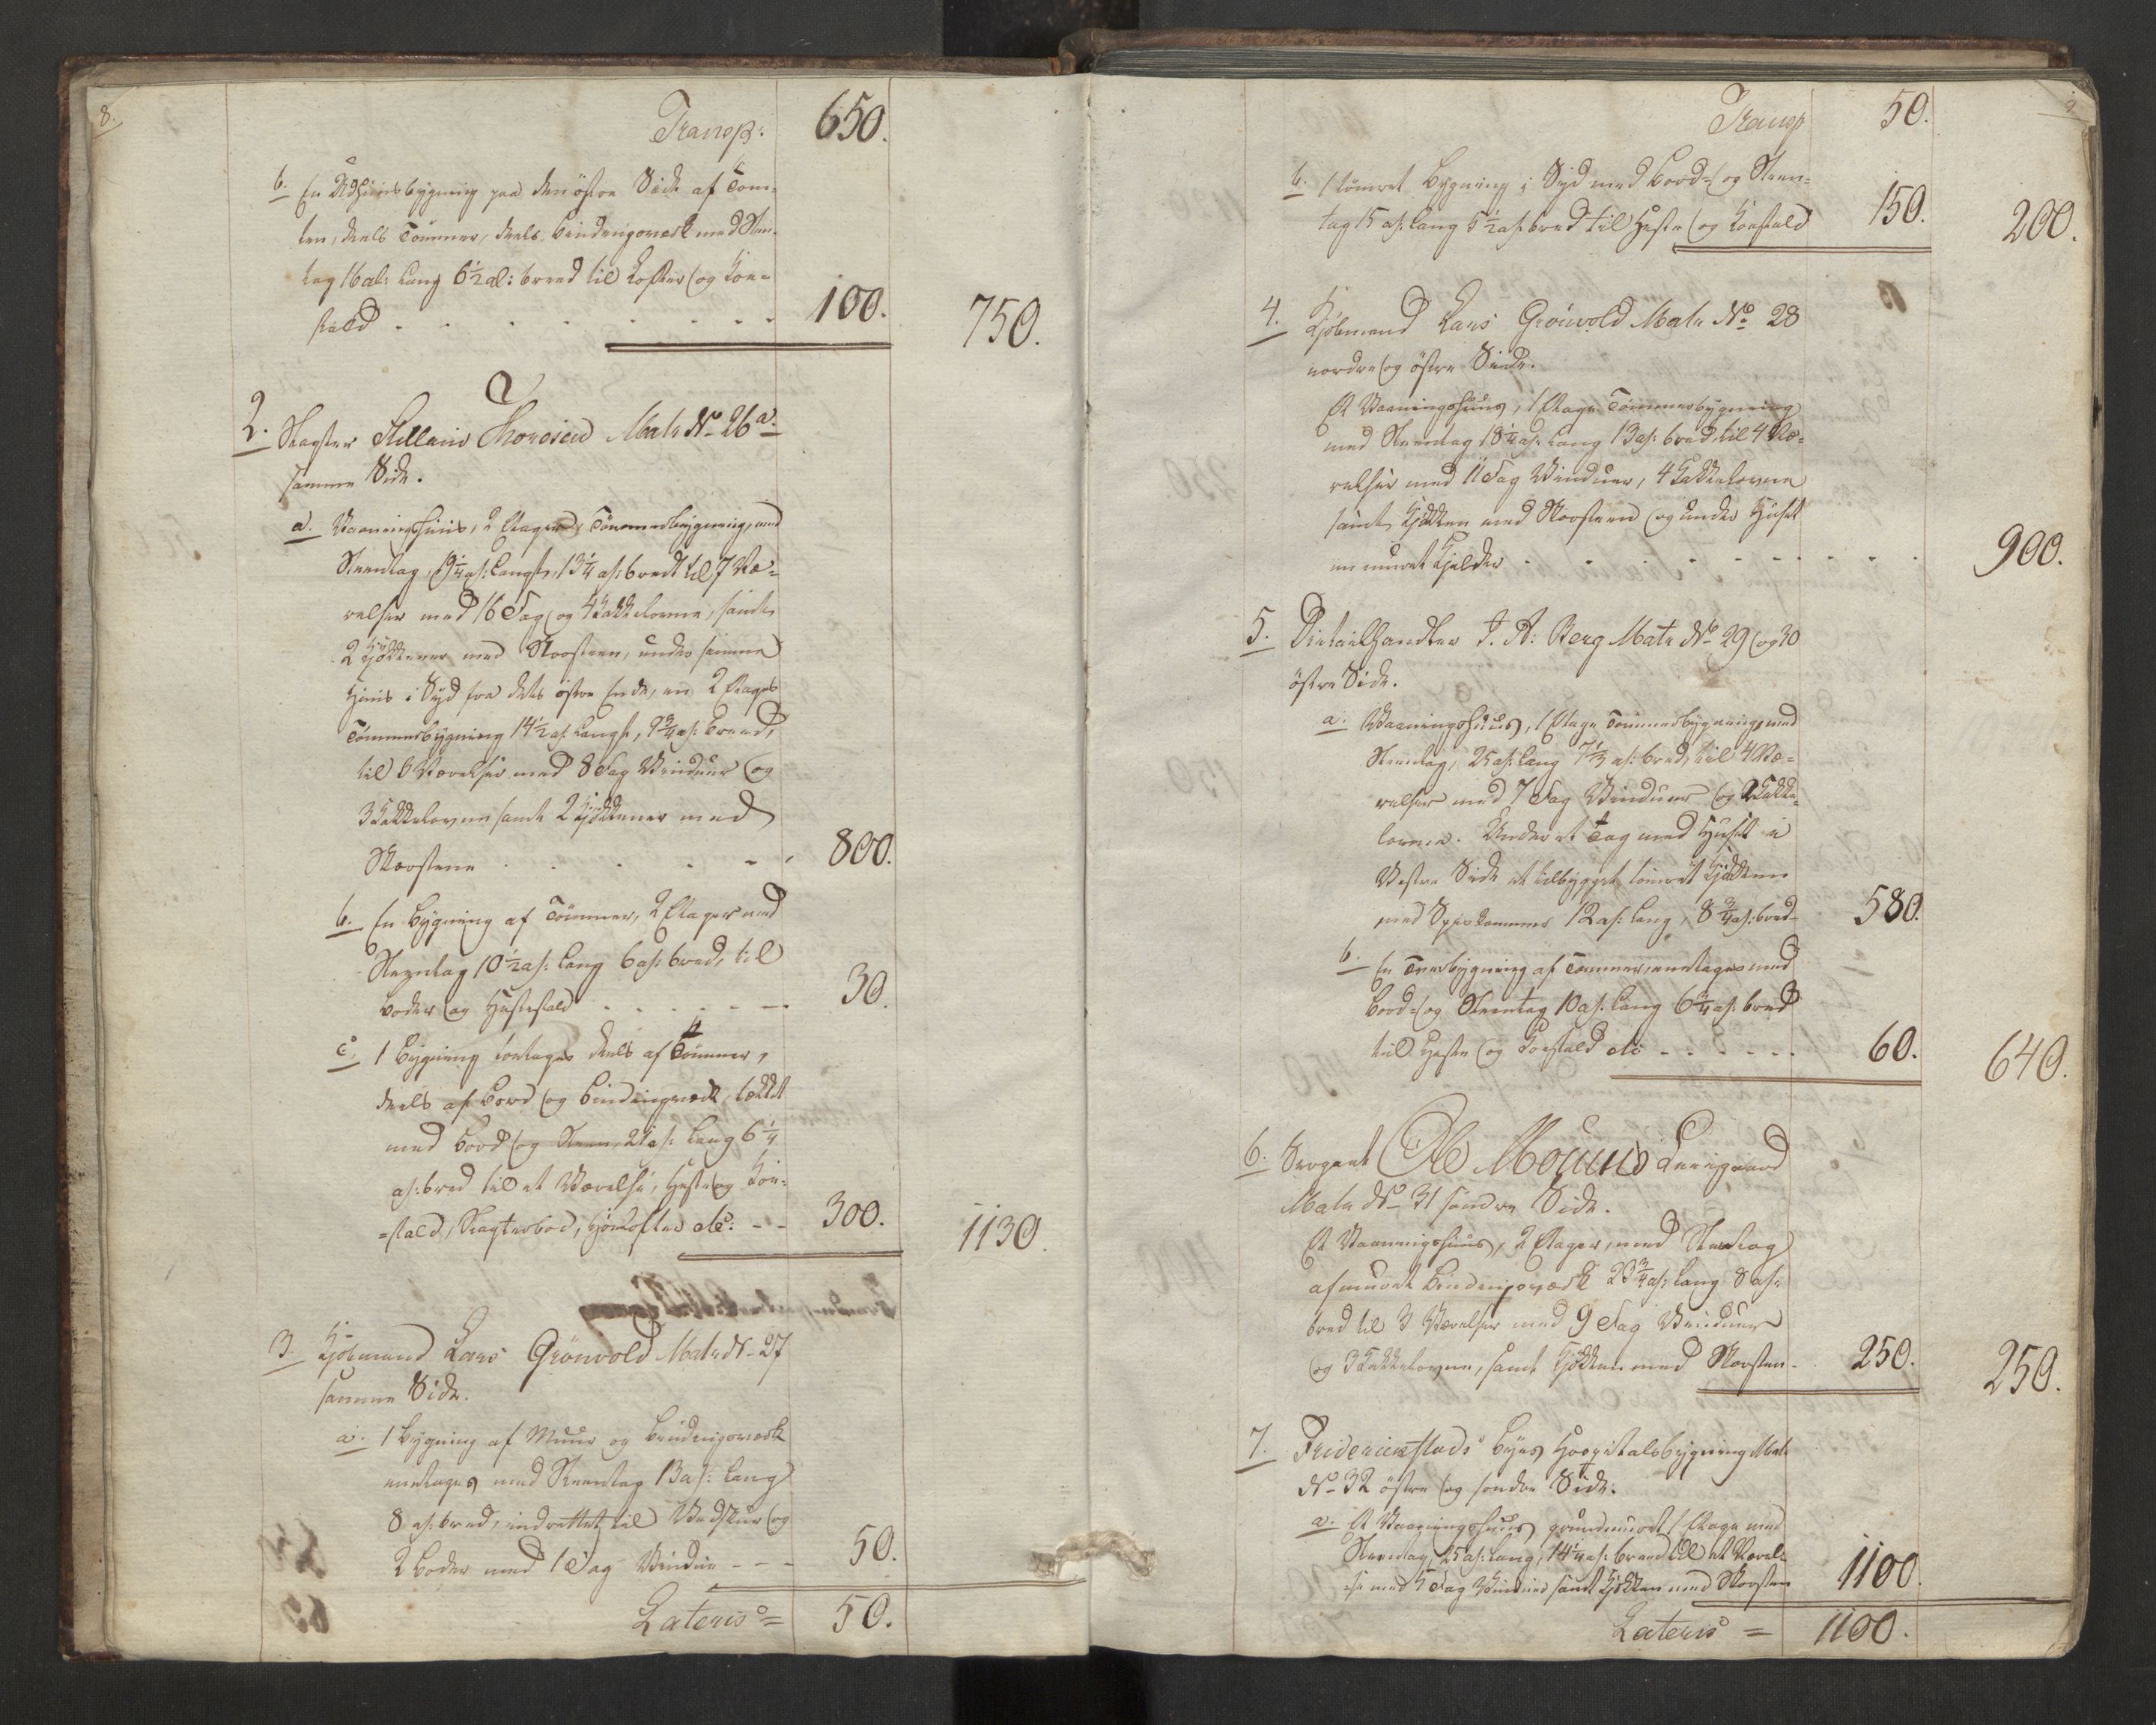 8.
Transp: 650.
b. En Udhuusbygning paa den östre Side af Tom-
ten, deels Tömmer, deels Bindingsværk med Steen-
tag 16 al: lang 6½ al: bred til Lofter og Koe-
stald - - - 100. 750.
2. Slagter Stillaus Thoresen Matr No 26a.
samme Side.
a. Vaaningshuus, 2 Etagers Tömmerbygning, med
Steentag, 19¼ al: langt, 13¼ al: bredt til 7 Væ-
relser med 16 Fag og 4 Kakkelovne, samt
2 Kjökkener med Skorsteen, under samme
Huus i Syd fra dets östre Ende, en 2 Etages
Tömmerbygning 14½ al. langt, 9¾ al: breed,
til 6 Værelser med 8 Fag Vinduer og
3 Kakkelovne samt 2 Kjökkener med
Skorstene - - - 800.
b. En Bygning af Tömmer, 2 Etager med
Steentag 10½ al: lang 6 al: bred, til
Boder og Hestestald - - - 30.
c. 1 Bygning toetages deels af Tömmer,
deels af Bord og Bindingsværk, tækket
med Bord og Steen, 21 al: lang 6¼
al: bred til et Værelse, Heste og Koe-
=stald, Slagterbod, Höelofter etc: - - 300. 1130.
3. Kjöbmand Lars Grönvold Matr No 27
samme Side.
a. 1 Bygning af Muur og Bindingsværk
eenetages med Steentag 13 al: lang
8 al: bred, indrettet til Vedskuur og
2 Boder med 1 Fag Vindue - - - 50.
Lateris = 50.
Transp 50.
b. 1 tömret Bygning i Syd med Bord= og Steen-
tag 15 al: lang 5½ al: bred til Heste og Koestald 150. 200.
4. Kjöbmand Lars Grönvold Matr No 28
nordre og östre Side.
Et Vaaningshuus, 1 Etage Tömmerbygning
med Steentag 18¼ al: lang 13 al: bred, til 4 Væ-
relser med 11 Fag Vinduer, 4 Kakkelovne
samt Kjökken med Skorsteen og under Huset
en muret Kjelder - - - 900.
5. Detailhandler J. A: Berg Matr No 29 og 30
östre Side.
a. Vaaningshuus, 1 Etage Tömmerbygning med
Steentag, 25 al: lang 7½ al: bred, til 4 Væ-
relser med 7 Fag Vinduer og 2 Kakke-
lovne. Under et Tag med Huset i
Vestre Side et tilbygget tömret Kjökken
med Spiskammer 12 al: lang, 8¾ al: bred- 580.
b. En Tverbygning af Tömmer, eenetages med
Bord= og Steentag 10 al: lang 6¼ al: bred
til Heste og Koestald etc - - - 60. 640.
6. Sergeant Ole Mouuns Leergaard
Matr No 31 söndre Side.
Et Vaaningshuus, 2 Etager, med Steentag
af muret Bindingsværk 23¾ al: lang 8 al:
bred til 3 Værelser med 9 Fag Vinduer
og 3 Kakkelovne, samt Kjökken med Skorsten- 250. 250.
7. Fridericksstads Byes Hospitalsbygning Matr
No 32 östre og söndre Side.
a. Et Vaaningshuus grundmuret 1 Etage med
Steentag, 25 al: lang, 14¼ al: breed til et Værel-
se med 5 Fag Vinduer samt Kjökken med Skorsten 1100.
Lateris = 1100.